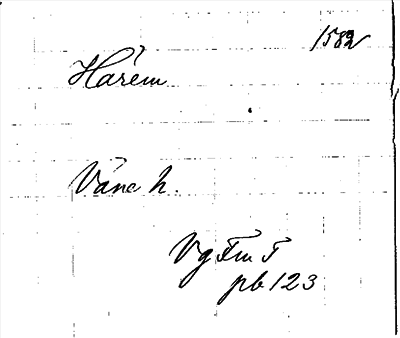 1582
Harem
Väne h.
Vg Fm T
pb 123